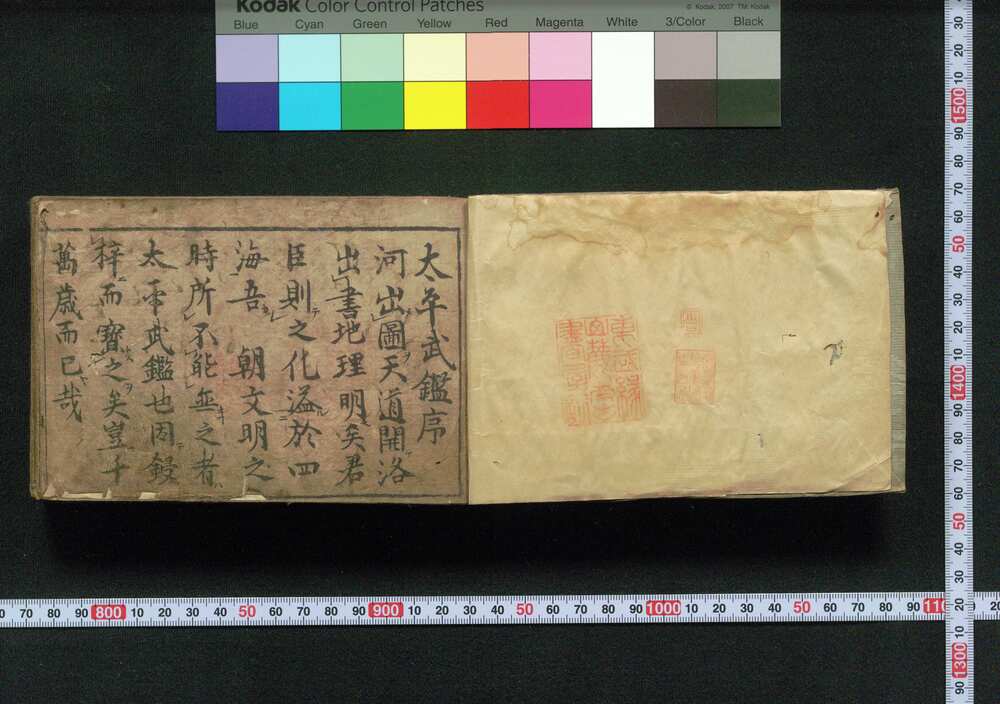 Kodak Color Control Patches
© Kodak, 2007 TM: Kodak
Blue Cyan Green Yellow Red Magenta White 3/Color Black
太平武鑑序
河出圖天道開洛
出書地理明矣君
臣則之化溢於四
海吾 朝文明之
時所不能無之者
太平武鑑也因鋟
梓而寶之矣豈千
萬歳而已哉
70 80 90 800 10 20 30 40 50 60 70 80 90 900 10 20 30 40 50 60 70 80 90 1000 10 20 30 40 50 60 70 80 90
30 20 10 1500 90 80 70 60 50 40 30 20 10 1400 90 80 70 60 50 40 30 20 10 1300 90